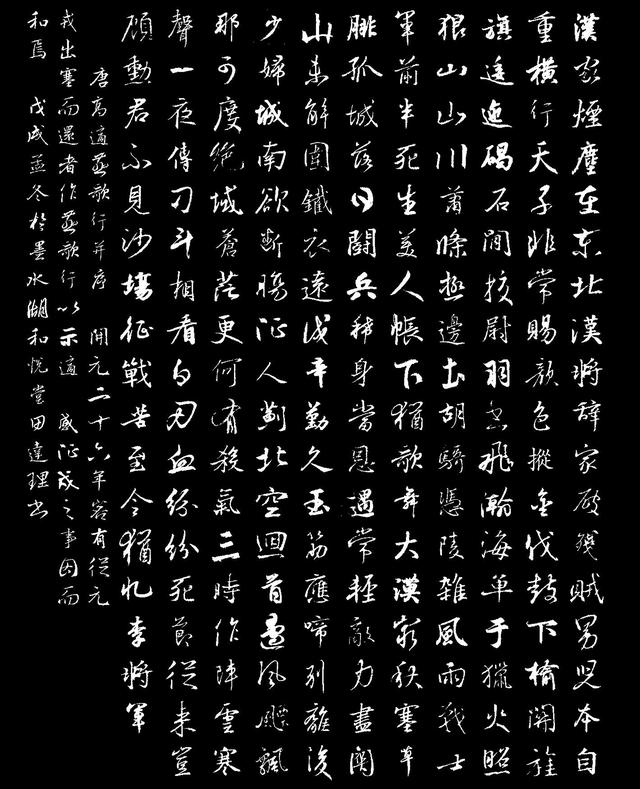 漢家煙塵在東北漢將辭家破殘賊男兒本自
重橫行天子非常賜顏色摐金伐鼓下榆關旌
旗逶迤碣石間校尉羽書飛瀚海單于獵火照
狼山山川蕭條極邊土胡騎憑陵雜風雨戰士
軍前半死生美人帳下猶歌舞大漠窮秋塞草
腓孤城落日闘兵稀身當恩遇常輕敵力盡關
山未解圍鐵衣遠戍辛勤久玉筯應啼別離後
少婦城南欲斷腸征人薊北空迴首邊風飄飄
那可度絕域蒼茫更何有殺氣三時作陣雲寒
聲一夜傳刁斗相看白刃血紛紛死節從來豈
顧勳君不見沙場征戰苦至今猶憶李將軍
唐高適燕歌行并序 開元二十六年客有從元
戎出塞而還者作燕歌行以示適 感征戍之事因而
和焉 戊戌孟冬於墨水湖和悅堂田達理書